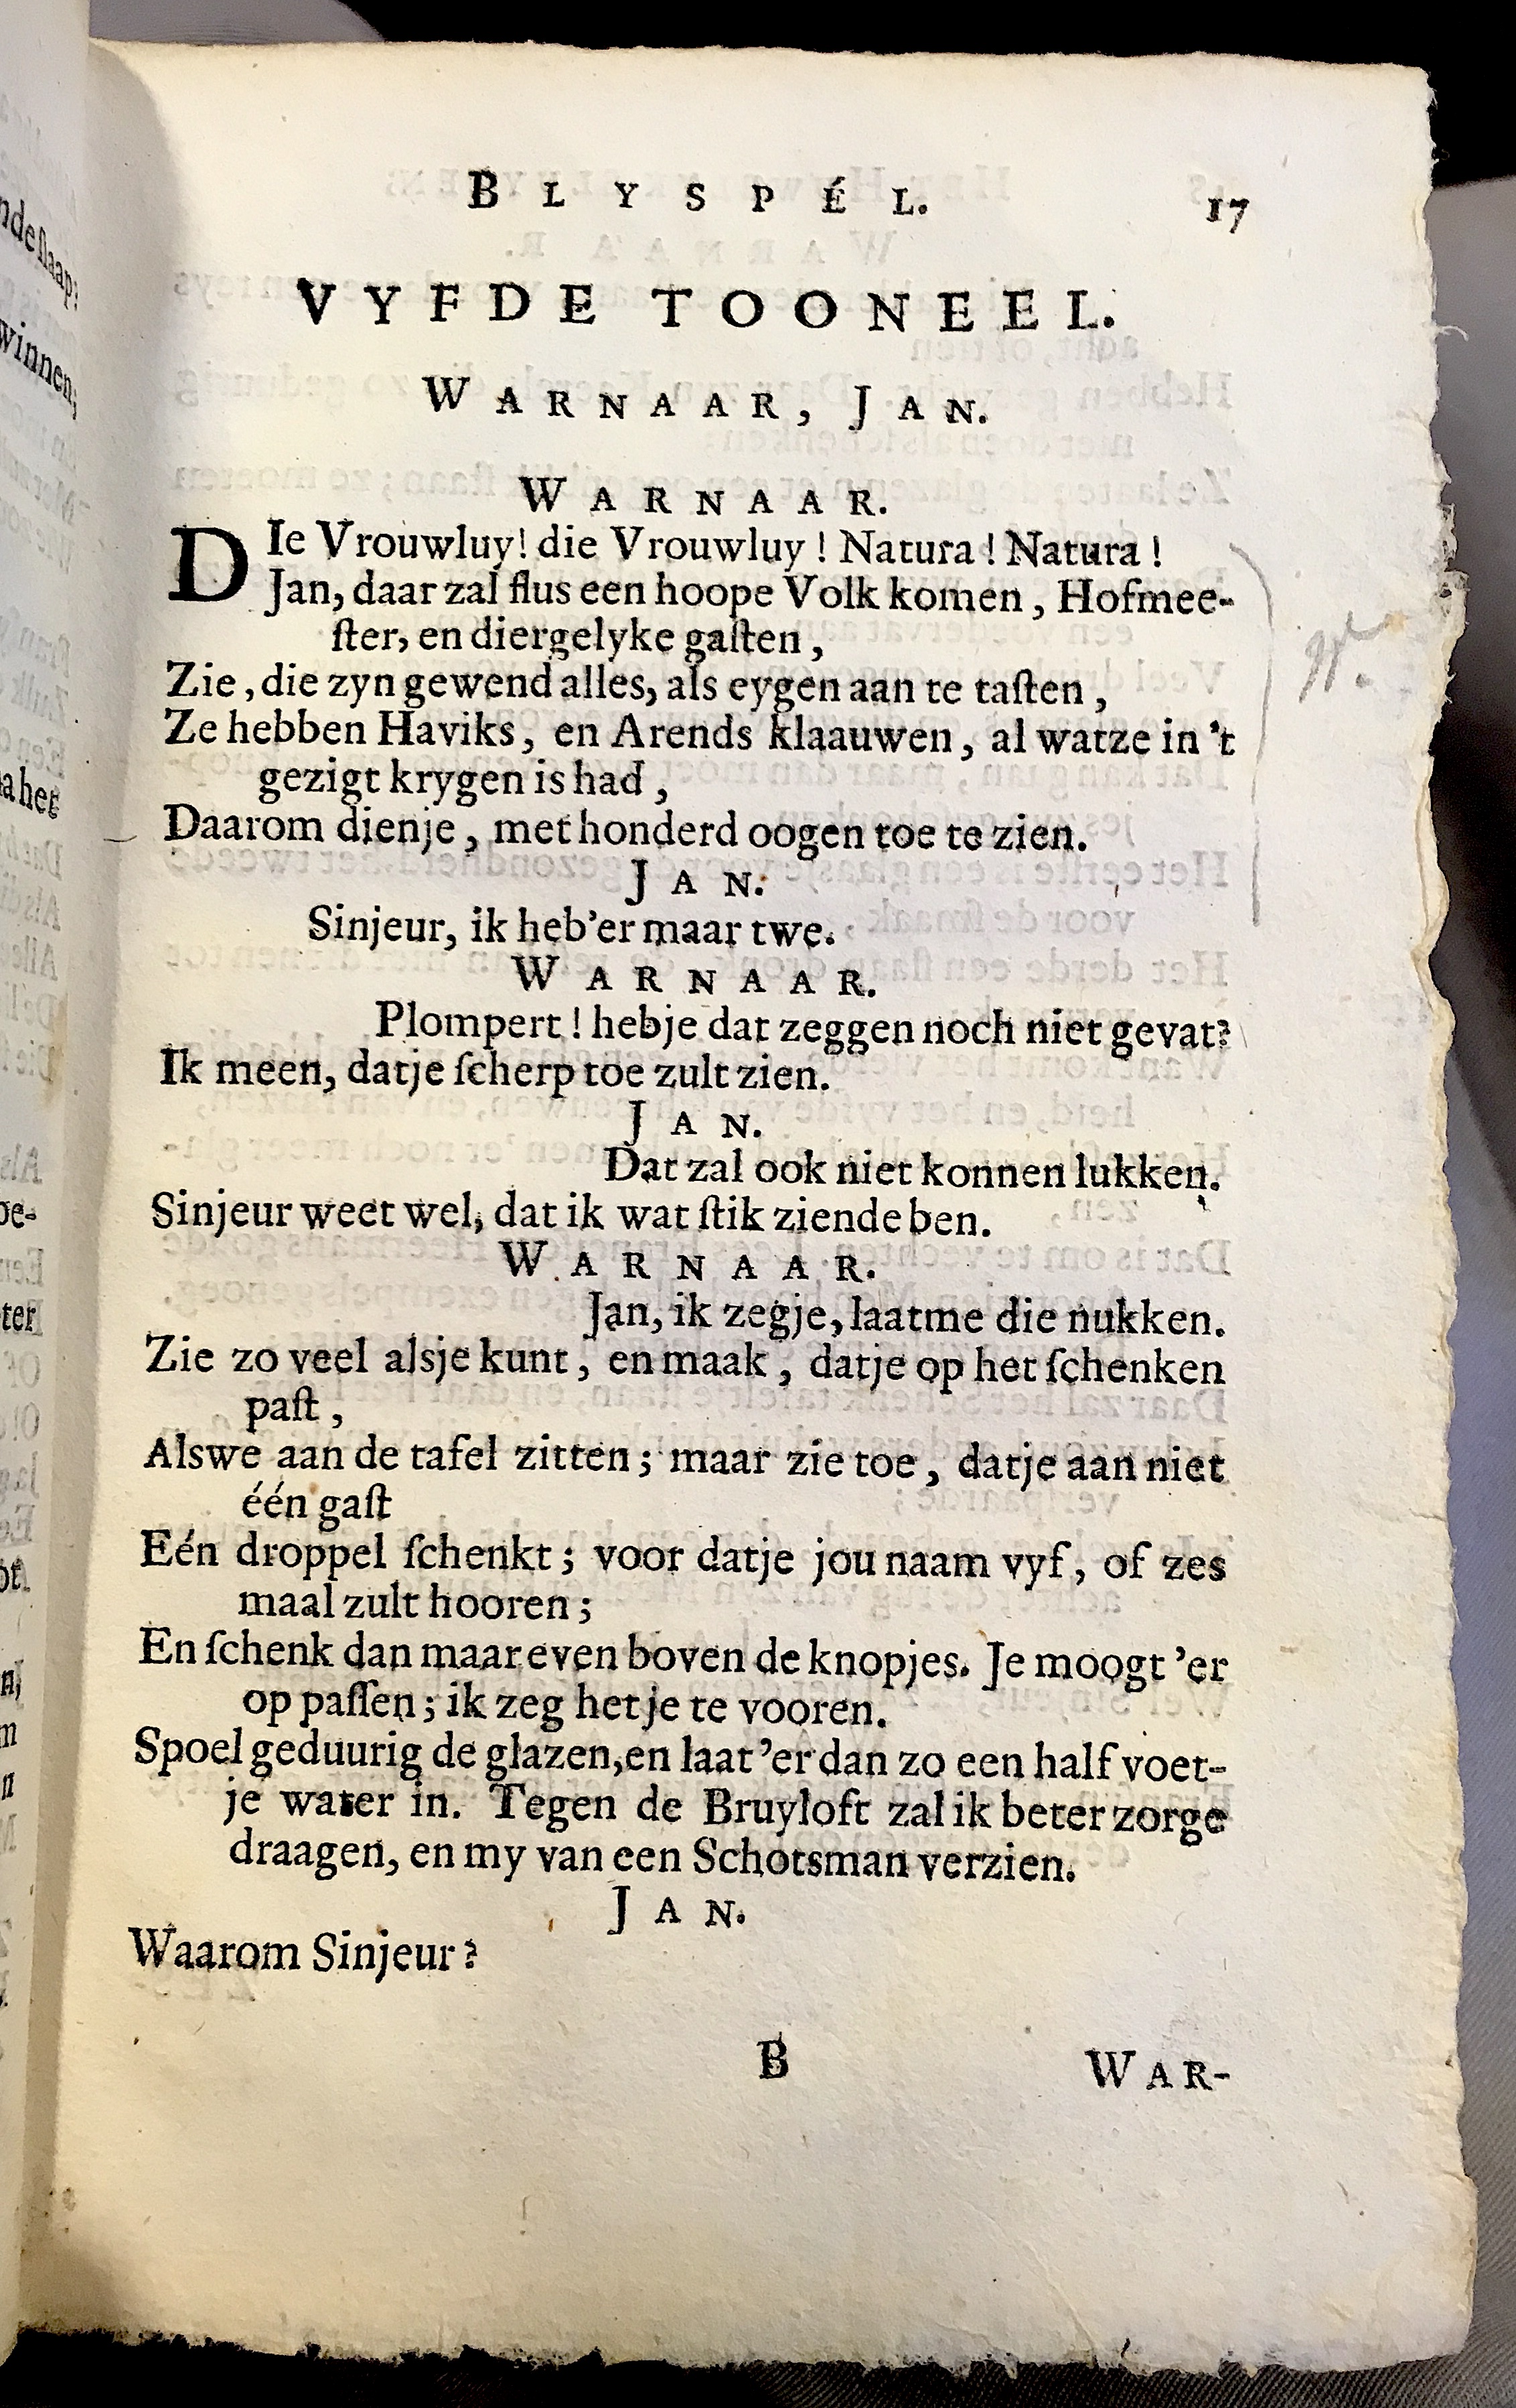 BLYSPÉL. 17
VYFDE TOONEEL.
WARNAAR, JAN.
WARNAAR.
DIe Vrouwluy! die Vrouwluy! Natura! Natura!
Jan, daar zal flus een hoope Volk komen, Hofmee-
ſter, en diergelyke gaſten,
Zie, die zyn gewend alles, als eygen aan te taſten,
Ze hebben Haviks, en Arends klaauwen, al watze in 't
gezigt krygen is had,
Daarom dienje, met honderd oogen toe te zien.
JAN.
Sinjeur, ik heb'er maar twe.
WARNAAR.
Plompert! hebje dat zeggen noch niet gevat?
Ik meen, datje ſcherp toe zult zien.
JAN.
Dat zal ook niet konnen lukken.
Sinjeur weet wel, dat ik wat ſtik ziende ben.
WARNAAR.
Jan, ik zegje, laatme die nukken.
Zie zo veel alsje kunt, en maak, datje op het ſchenken
paſt,
Alswe aan de tafel zitten; maar zie toe, datje aan niet
één gaſt
Eén droppel ſchenkt; voor datje jou naam vyf, of zes
maal zult hooren;
En ſchenk dan maar even boven de knopjes. Je moogt 'er
op paſſen; ik zeg het je te vooren.
Spoel geduurig de glazen, en laat 'er dan zo een half voet-
je water in. Tegen de Bruyloft zal ik beter zorge
draagen, en my van een Schotsman verzien.
JAN.
Waarom Sinjeur?
B WAR-